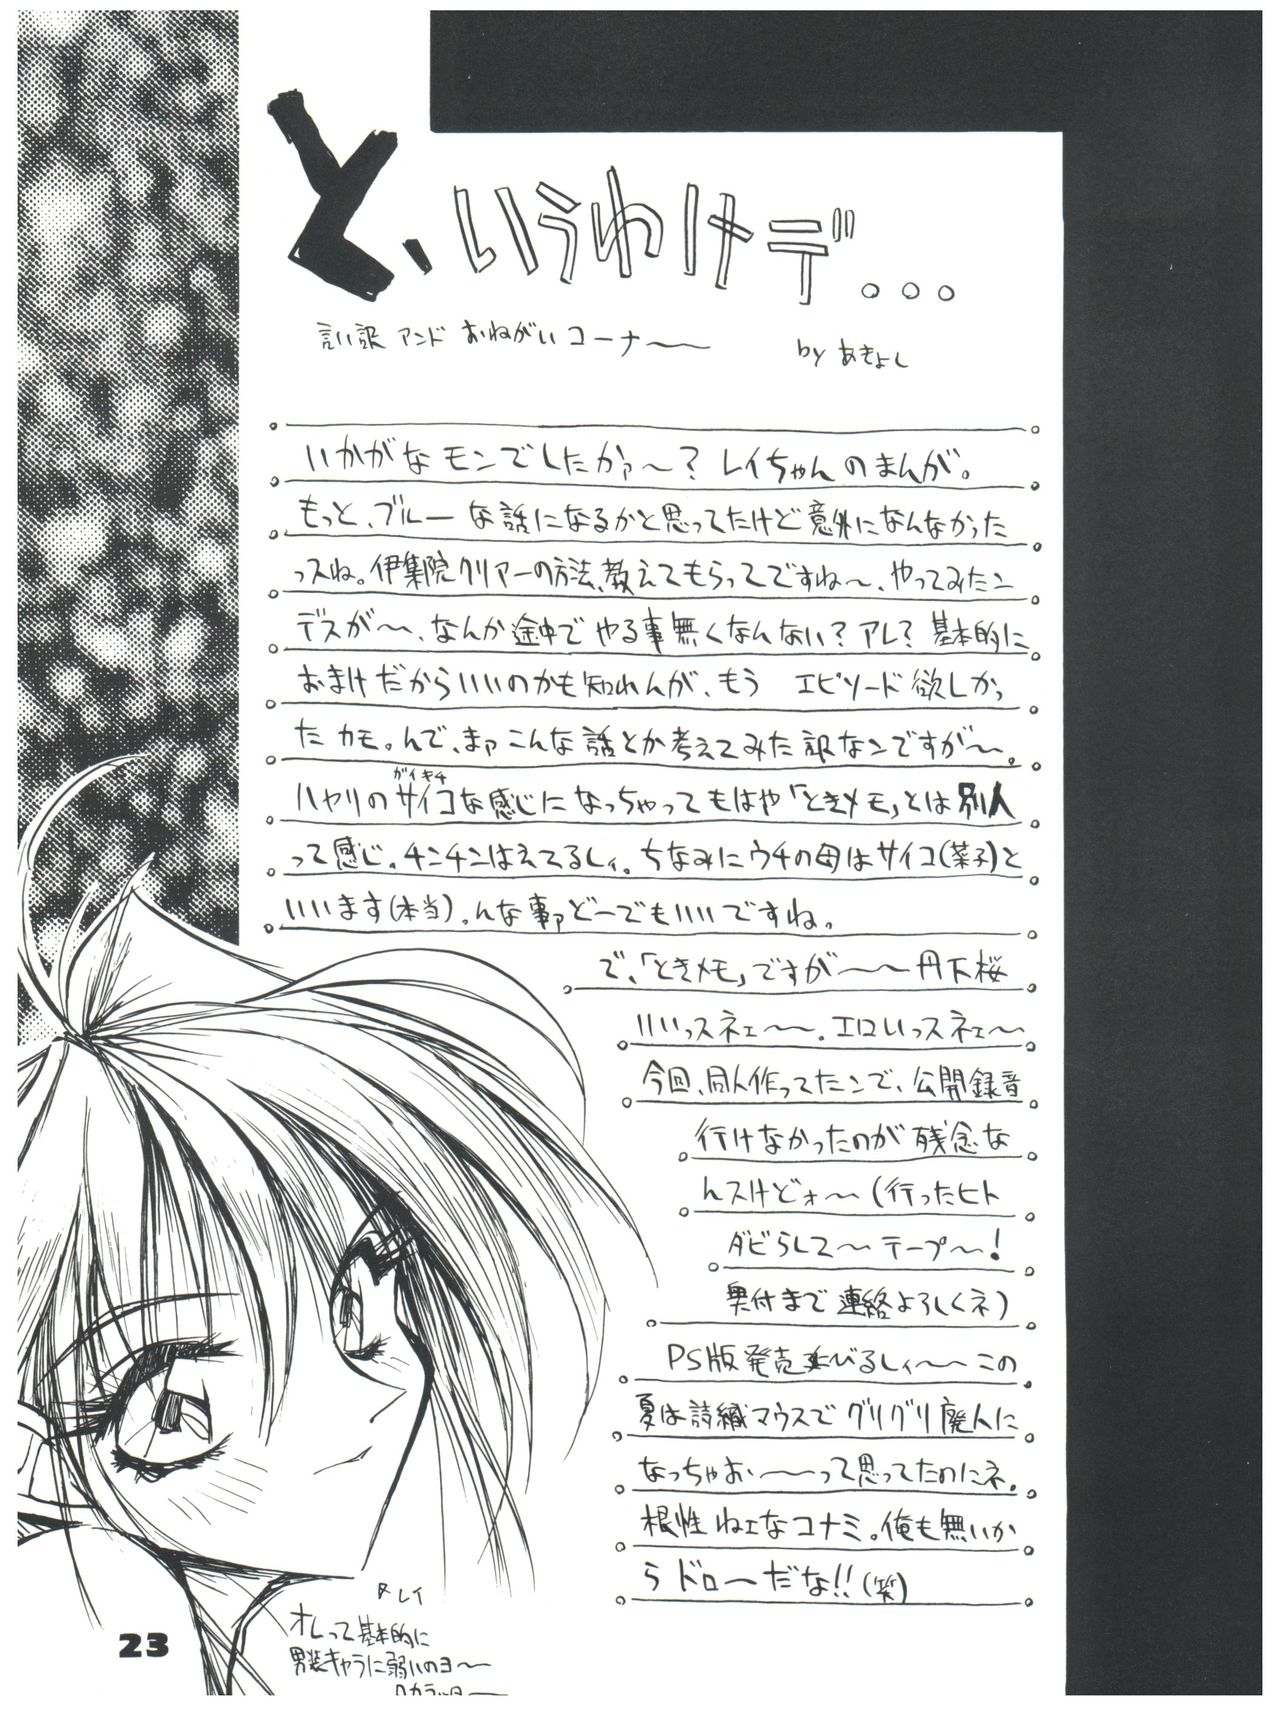 と、いうわけデ...
言い訳 アンド おねがい コーナ〜〜
by あきよし
いかがなモンでしたかァ〜？ レイちゃんのまんが。
もっと、ブルーな話になるかと思ってたけど意外になんなかった
っスね。伊集院クリアーの方法、教えてもらってですね〜、やってみたン
デスが〜、なんか途中でやる事無くなんない？アレ？基本的に
おまけだからいいのかも知れんが、もう エピソード欲しかっ
たカモ。んで、まァこんな話とか考えてみた訳なンですが〜。
ガイキチ
ハヤリのサイコな感じになっちゃってもはや「ときメモ」とは別人
って感じ。チンチンはえてるしィ。ちなみにウチの母はサイコ(菜子)と
いいます(本当)。んな事ァどーでもいいですね。
で、「ときメモ」ですが〜〜丹下桜
いいっスネェ〜〜。エロいっスネェ〜
今回、同人作ってたンで、公開録音
行けなかったのが残念な
んスけどォ〜（行ったヒト
ダビらして〜テープ〜！
奥付まで連絡よろしくネ）
PS版発売延びるしィ〜〜この
夏は詩織マウスでグリグリ廃人に
なっちゃおぉ〜〜って思ってたのにネ。
根性ねェなコナミ。俺も無いか
らドロ〜だな!!(笑)
レイ
オレって基本的に
男装キャラに弱いのヨ〜
23